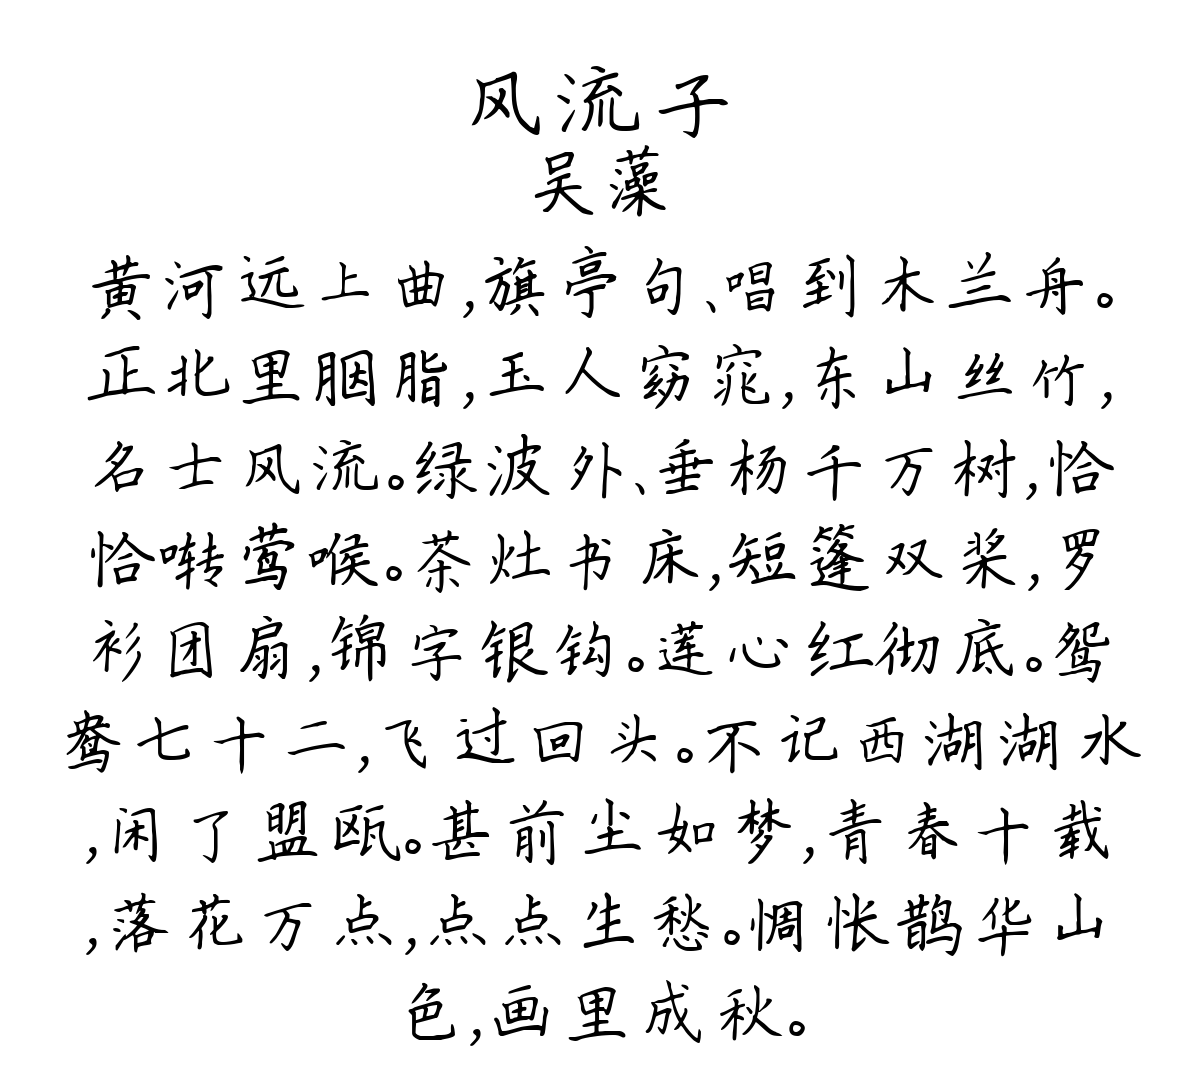 风流子
吴藻
黄河远上曲,旗亭句、唱到木兰舟。
正北里胭脂,玉人窈窕,东山丝竹,
名士风流。绿波外、垂杨千万树,恰
恰啭莺喉。茶灶书床,短篷双桨,罗
衫团扇,锦字银钩。莲心红彻底。鸳
鸯七十二,飞过回头。不记西湖湖水
,闲了盟瓯。甚前尘如梦,青春十载
,落花万点,点点生愁。惆怅鹊华山
色,画里成秋。